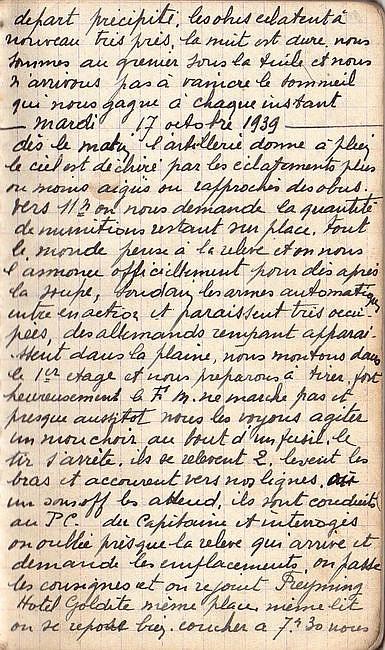 depart précipité, les obus eclatent à
nouveau très près, la nuit est dure, nous
sommes au grenier sous la tuile et nous
n'arrivons pas à vaincre le sommeil
qui nous gagne à chaque instant
mardi 17 octobre 1939
dès le matin l'artillerie donne à plein
le ciel est déchiré par les éclatements plus
ou moins aigus ou rapprochés des obus.
vers 11h on nous demande la quantité
de munitions restant sur place. tout
le monde pense à la relève et on nous
l'annonce officiellement pour dès après
la soupe, soudain les armes automatiques
entre en action et paraissent très occu
pées, des allemands rempant apparai
ssent dans la plaine, nous montons dans
le 1er étage et nous préparons à tirer, fort
heureusement le F.M. ne marche pas et
presque aussitot nous les voyons agiter
un mouchoir au bout d'un fusil. le
tir s'arrête. ils se relevent 2, levent les
bras et accourent vers nos lignes,
un sous off les attend, ils sont conduits
au P.C. du Capitaine et interrogés
on oublie presque la relève qui arrive et
demande les emplacements, on passe
les consignes et on rejoint Freyming
Hotel Goldité même place même lit
on se repose bien. coucher a 7h30 nous